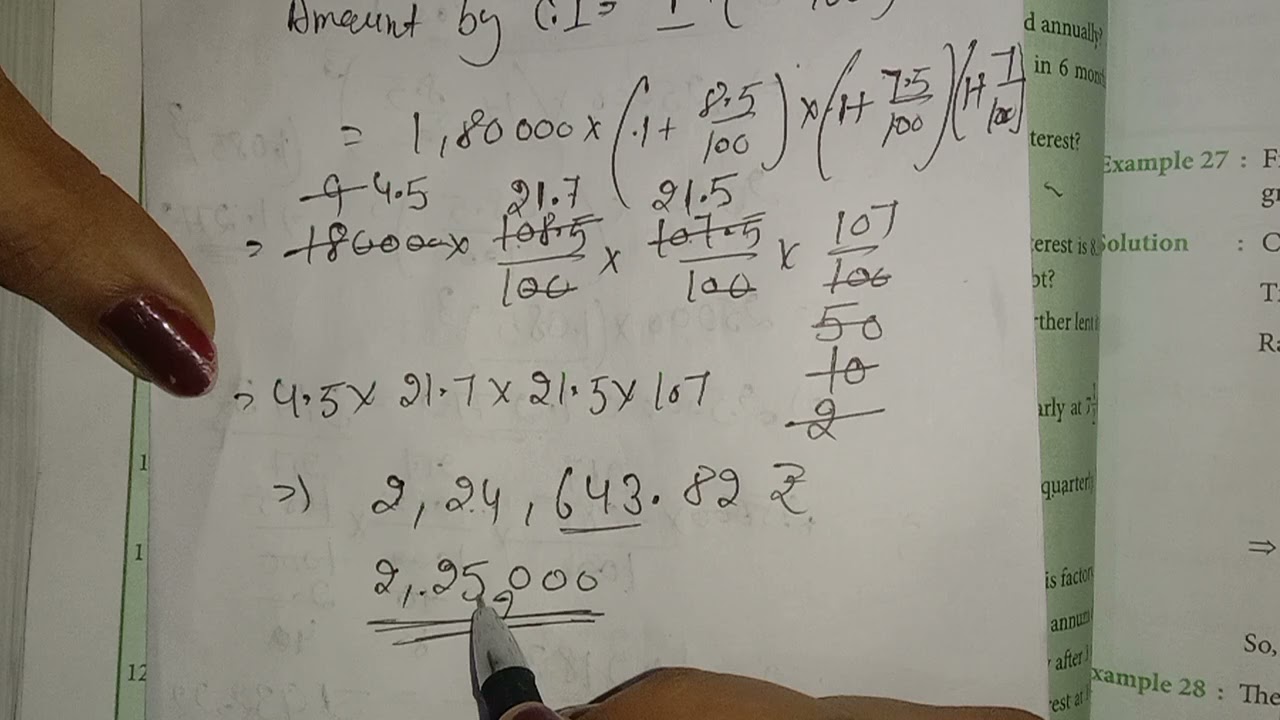 Amount by C.I =
= 1,80000 × (1 + 8.5/100) × (1 + 7.5/100) (1 + 7/100)
9 4.5 21.7 21.5
= 180000 × 108.5/100 × 107.5/100 × 107/100
50
10
2
= 4.5 × 21.7 × 21.5 × 107
=) 2,24,643.82 ₹
2,25,000
1
1
12
d annually?
in 6 mon
terest?
erest is 8
ot?
ther lent
arly at 7 1/2
quarterl
is factor
annu
after
est at
Example 27 : F
gi
Solution : C
T
Ra
⇒
So,
xample 28 : The